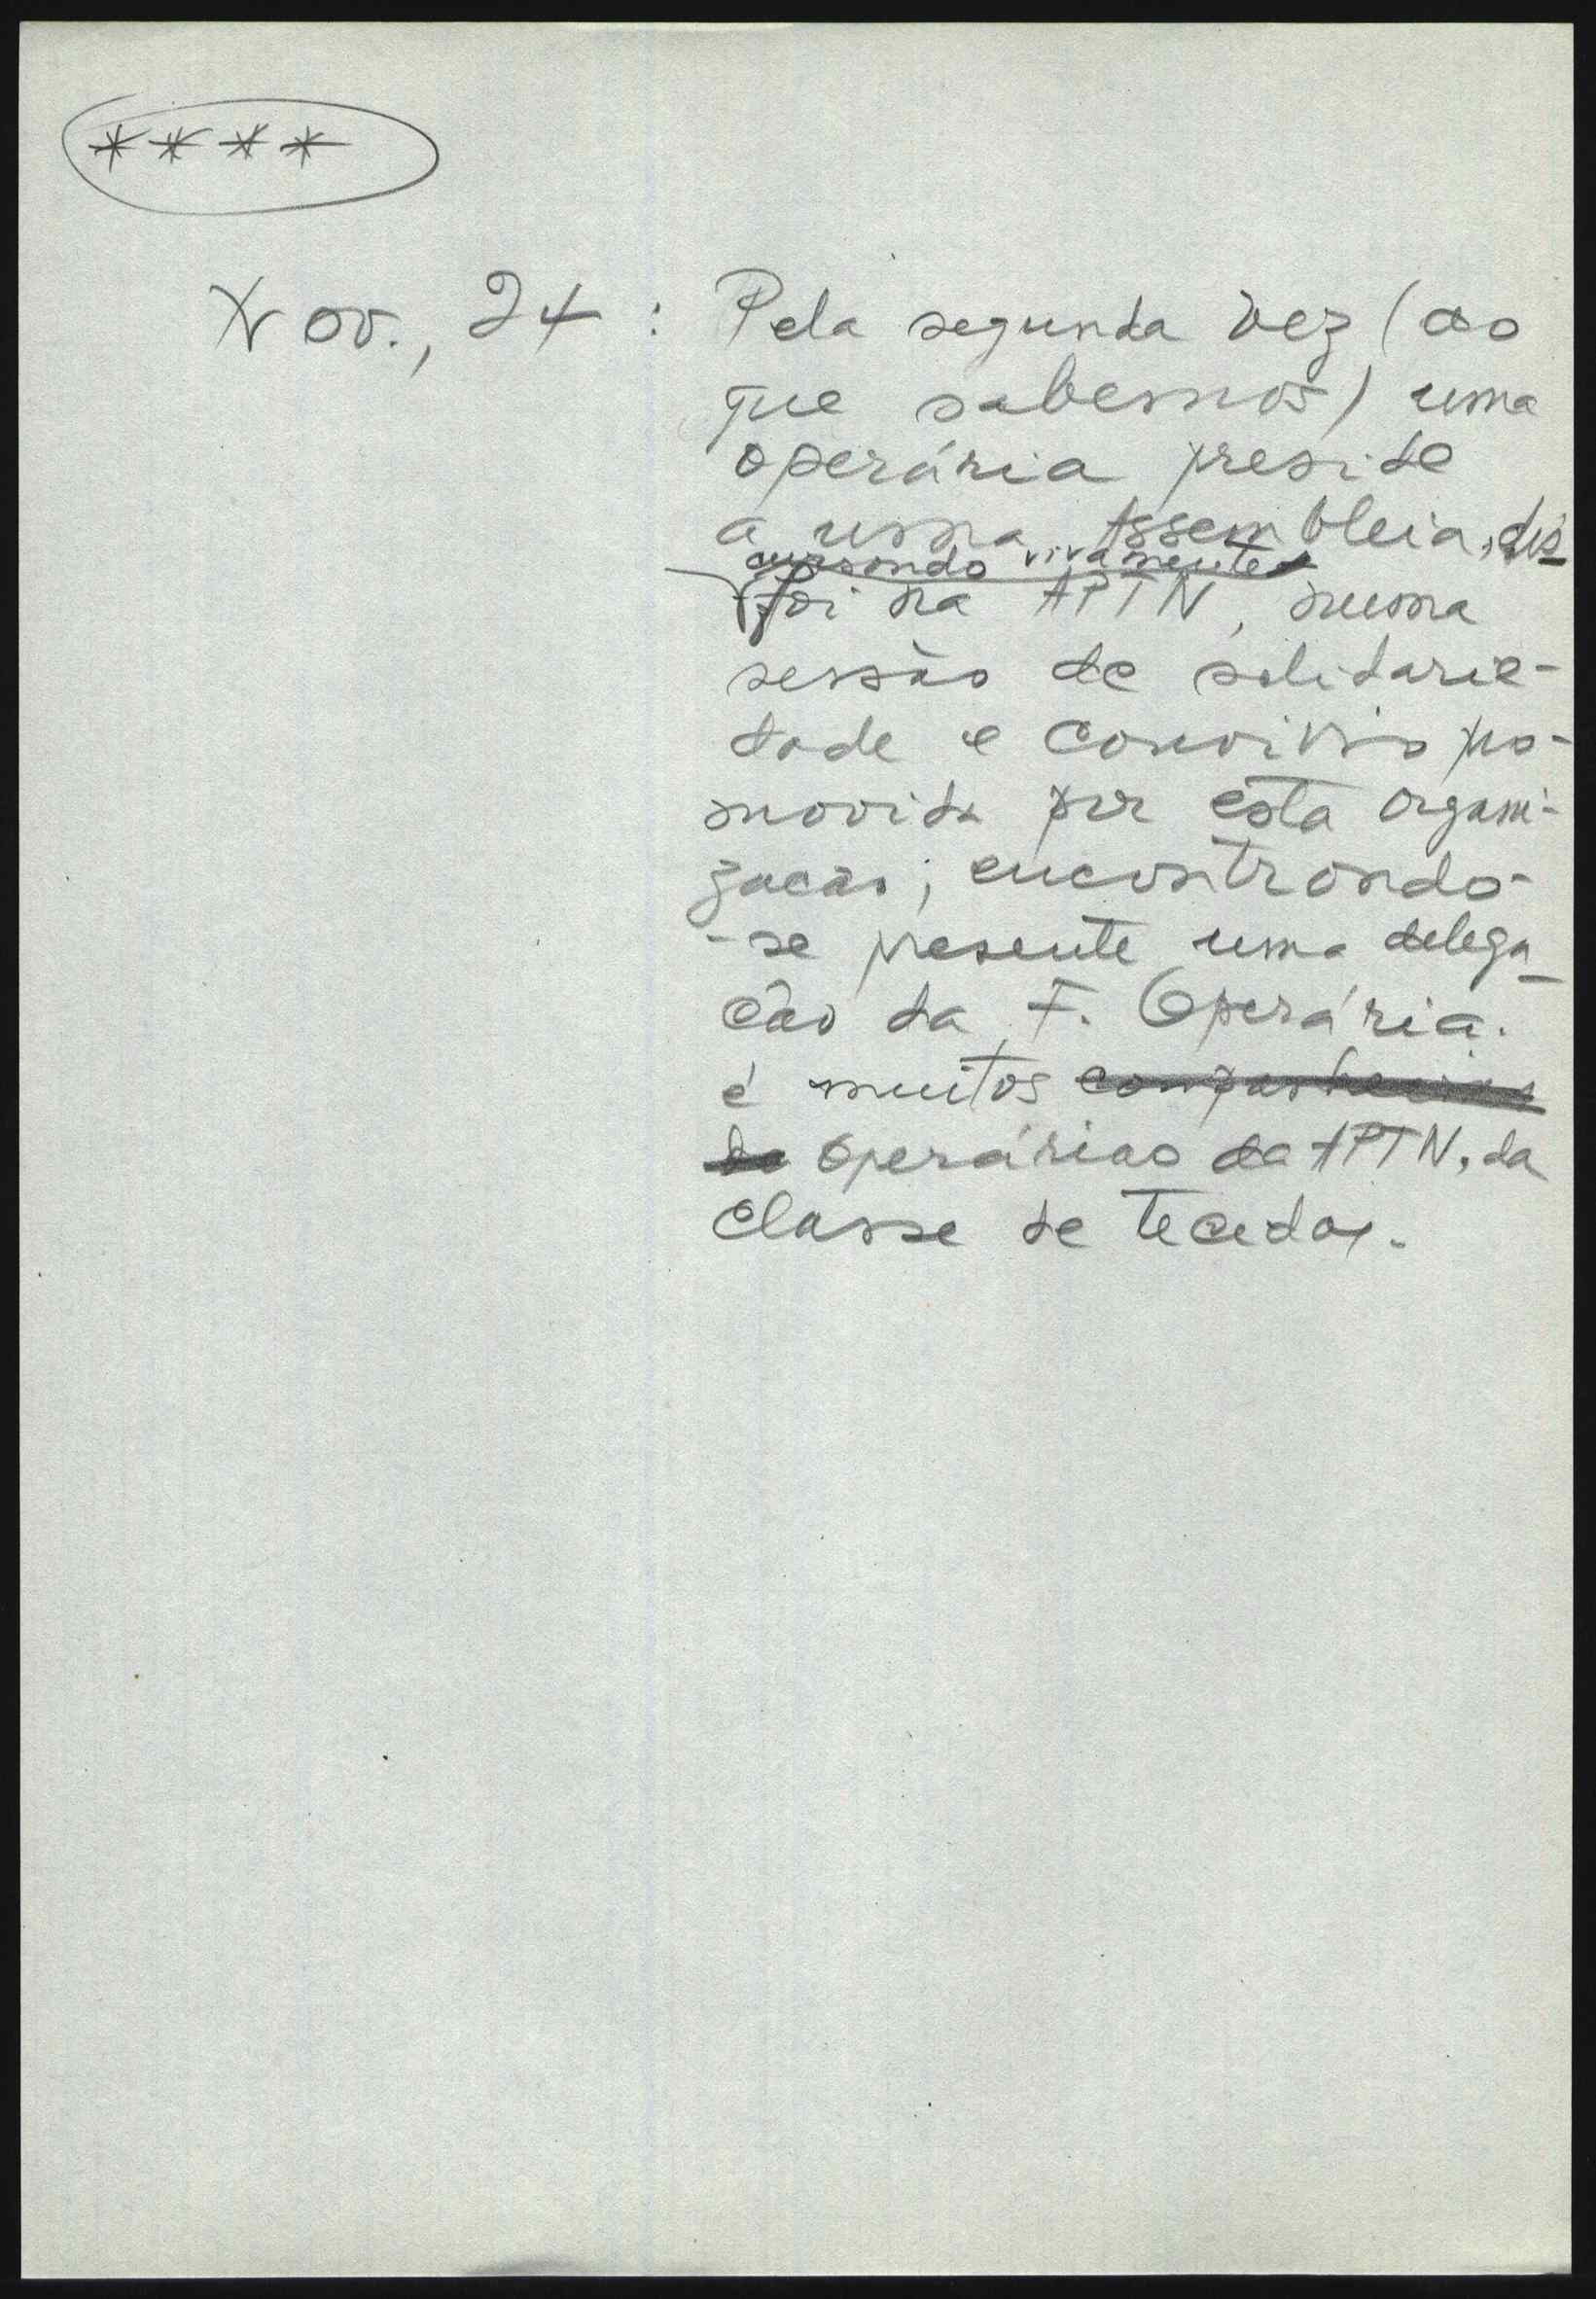 ****
Nov., 24 : Pela segunda vez (ao
que sabemos) uma
operária preside
a uma Assembleia, dis-
cursando vivamente.
Foi na APTN, numa
sessão de solidarie-
dade e convivio pro-
movida por esta organi-
zacão; encontrando-
-se presente uma delega-
cão da F. Operária.
e muitos companheiros
da operários da APTN, da
classe de tecidos.